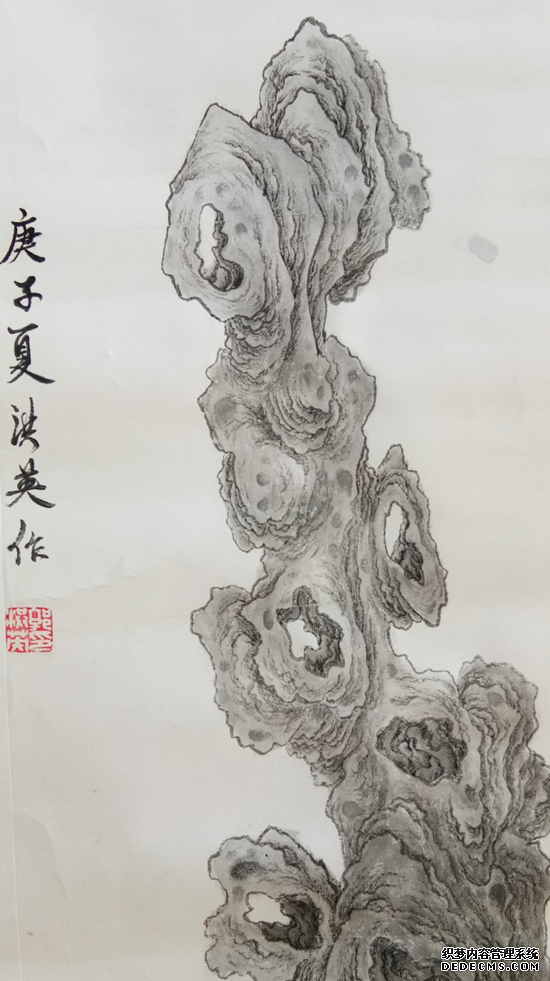 庚子夏洪英作
郭洪英印
织梦内容管理系统
DEDECMS.COM